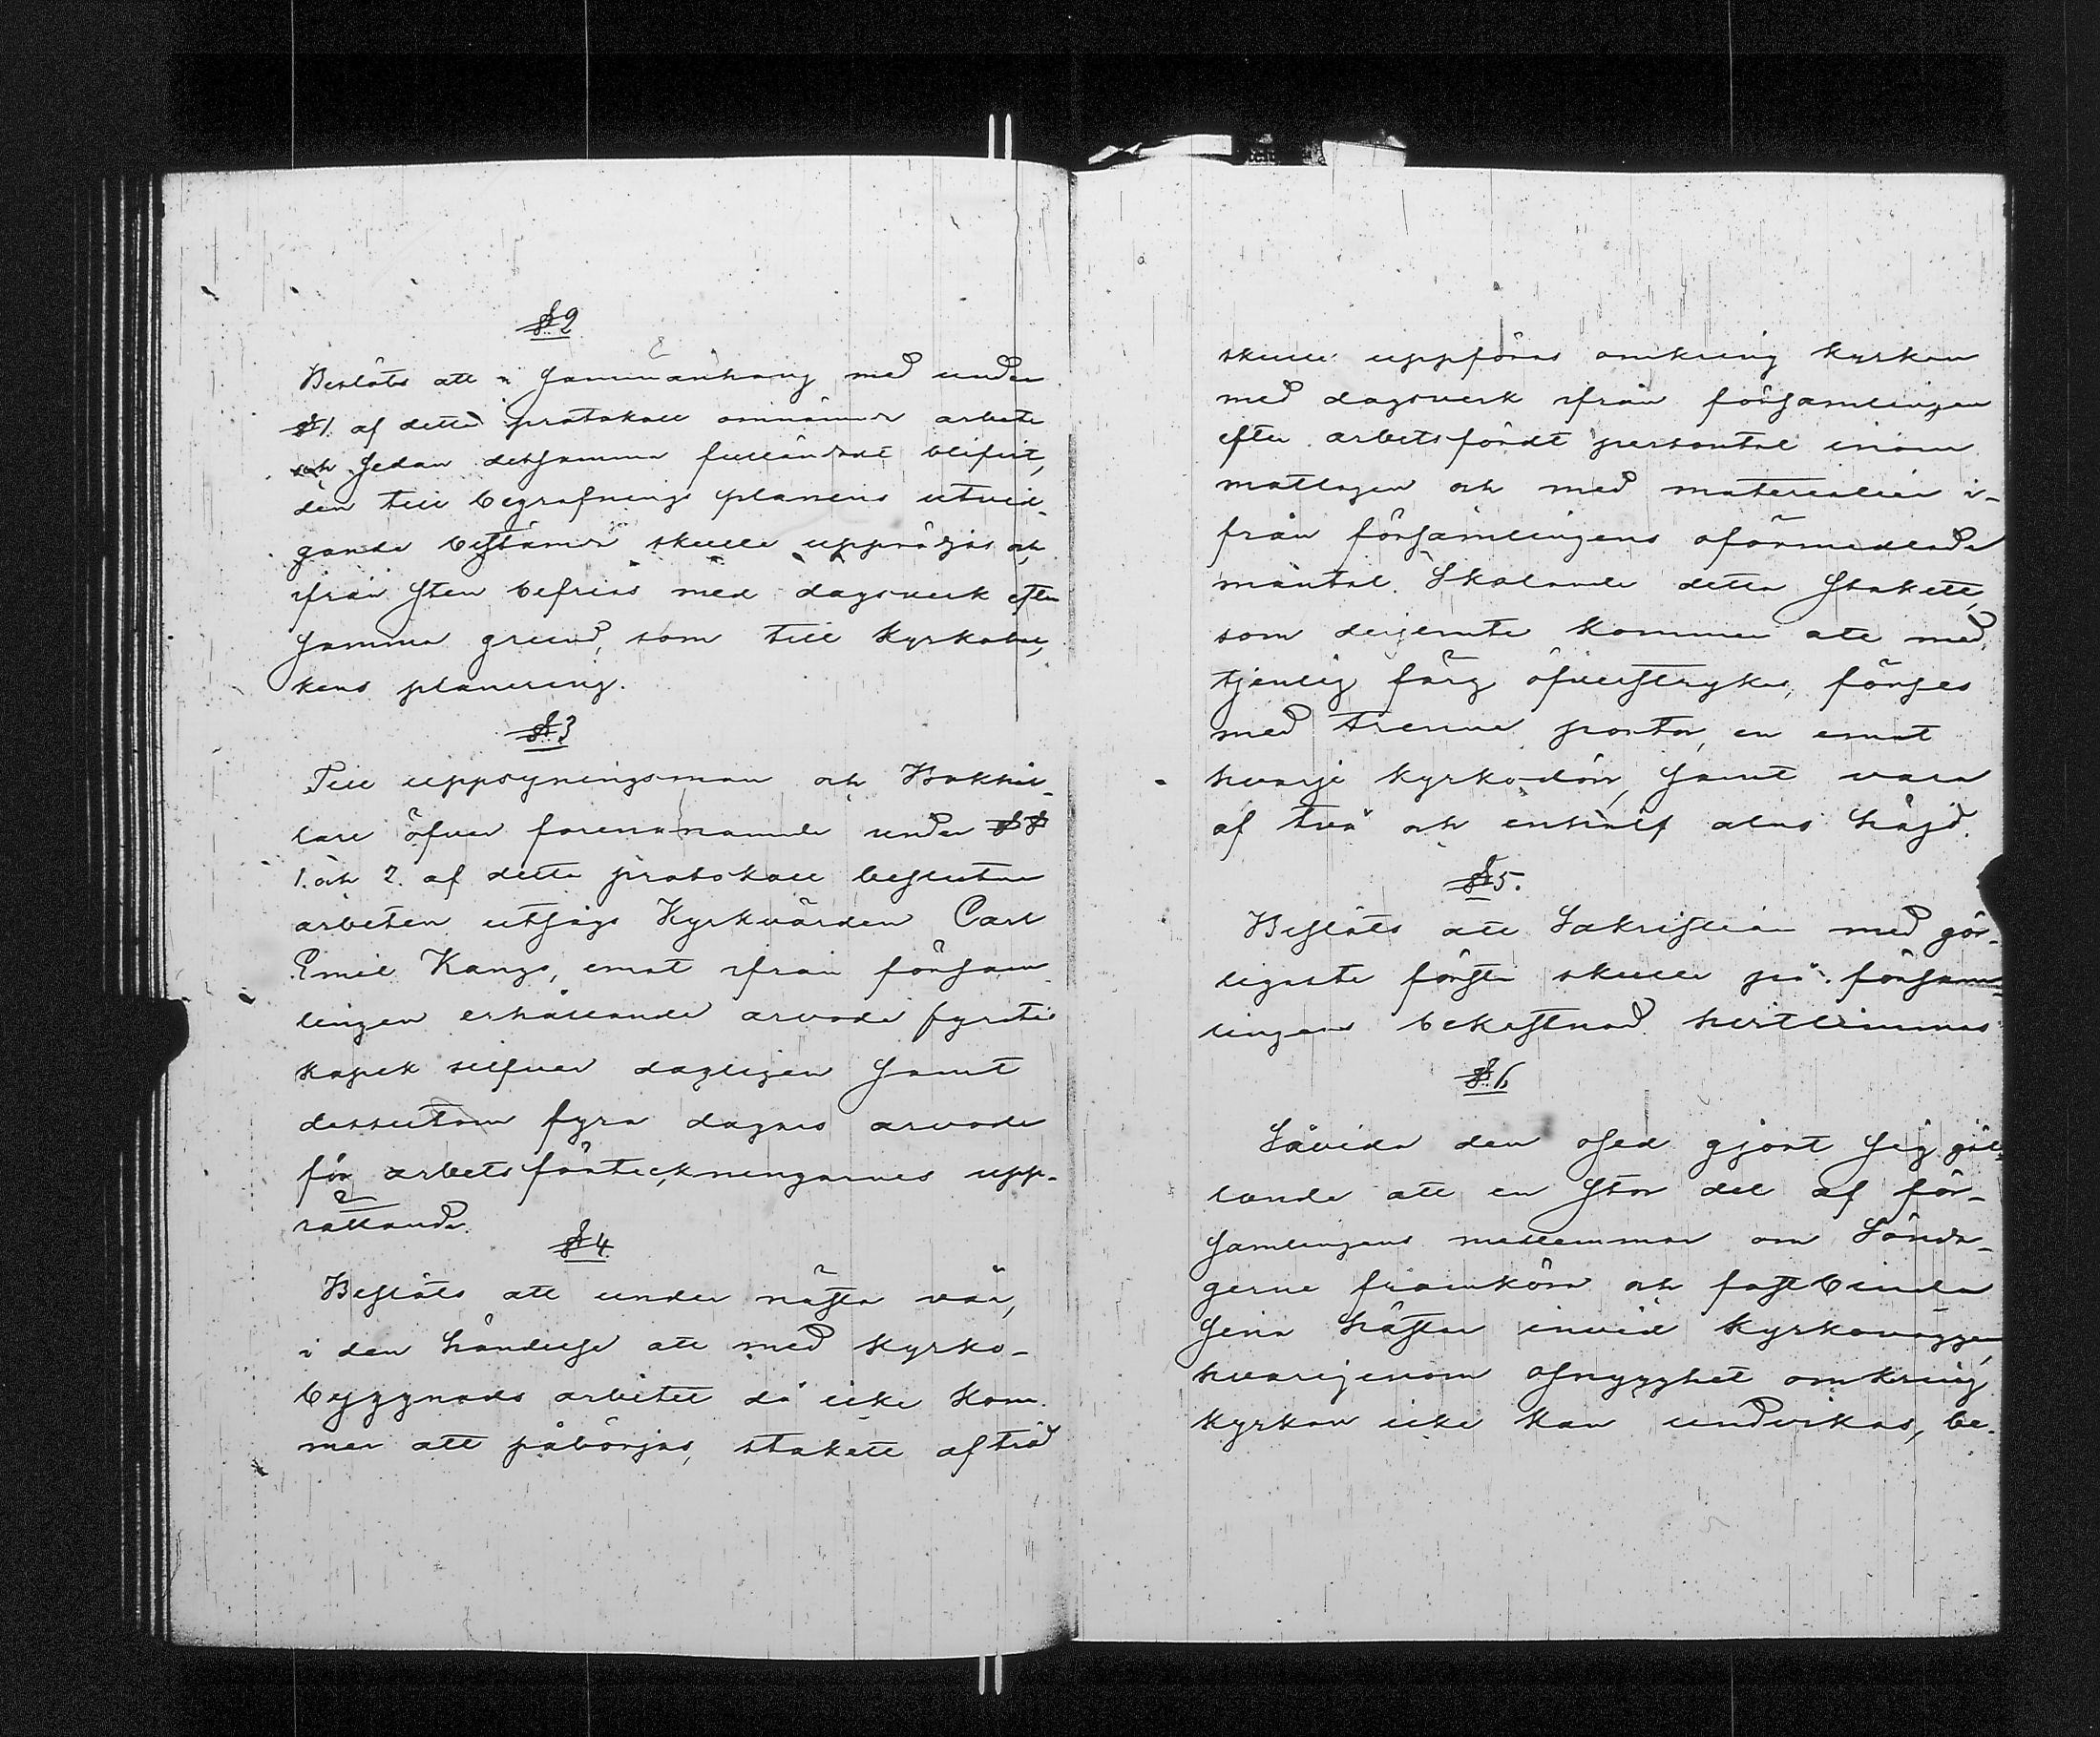 § 2
Beslöts att i sammanhang med under
§ 1. af detta protokoll omnämnda arbete
och sedan detsamma fulländadt blifvit,
den till begrafnings planens utvid-
gande bestämda skulle uppröjas och
ifrån sten befrias med dagsverk efter
samma grund, som till kyrkobac-
kens planering.
§ 3
Till uppsyningsman och Bokhål-
lare öfver förenämnde under §§
1. och 2. af detta protokoll beslutne
arbeten utsågs Kyrkvärden Carl
Emil Kangs, emot ifrån försam-
lingen erhållande arvode fyratio
kopek silfver dagligen samt
dessutom fyra dagars arvode
för arbetsförteckningarnes upp-
rättande.
§ 4
Beslöts att under nästa vår,
i den händelse att med kyrko-
byggnads arbetet då icke kom-
mer att påbörjas, stakett af träd
skulle uppföras omkring kyrkan
med dagsverk ifrån församlingen
efter arbetsfördt persontal inom
matlagen och med materialier i-
från församlingens oförmedlade
mantal. Skolande detta stakett,
som derjemte kommer att med
tjenlig färg öfverstrykas, förses
med trenne portar, en emot
hvarje kyrkodörr, samt vara
af två och enhalf alns höjd.
§ 5.
Beslöts att Sakristian med gör-
ligaste första skulle på försam-
lingens bekostnad hvitlimmas
§ 6
Såvida den osed gjort sig gäl-
lande att en stor del af för-
samlingens medlemmar om Sönda-
gerne framköra och fastbinda
sina hästar invid kyrkoväggen,
hvarigenom osnygghet omkring
kyrkan icke kan undvikas, be-